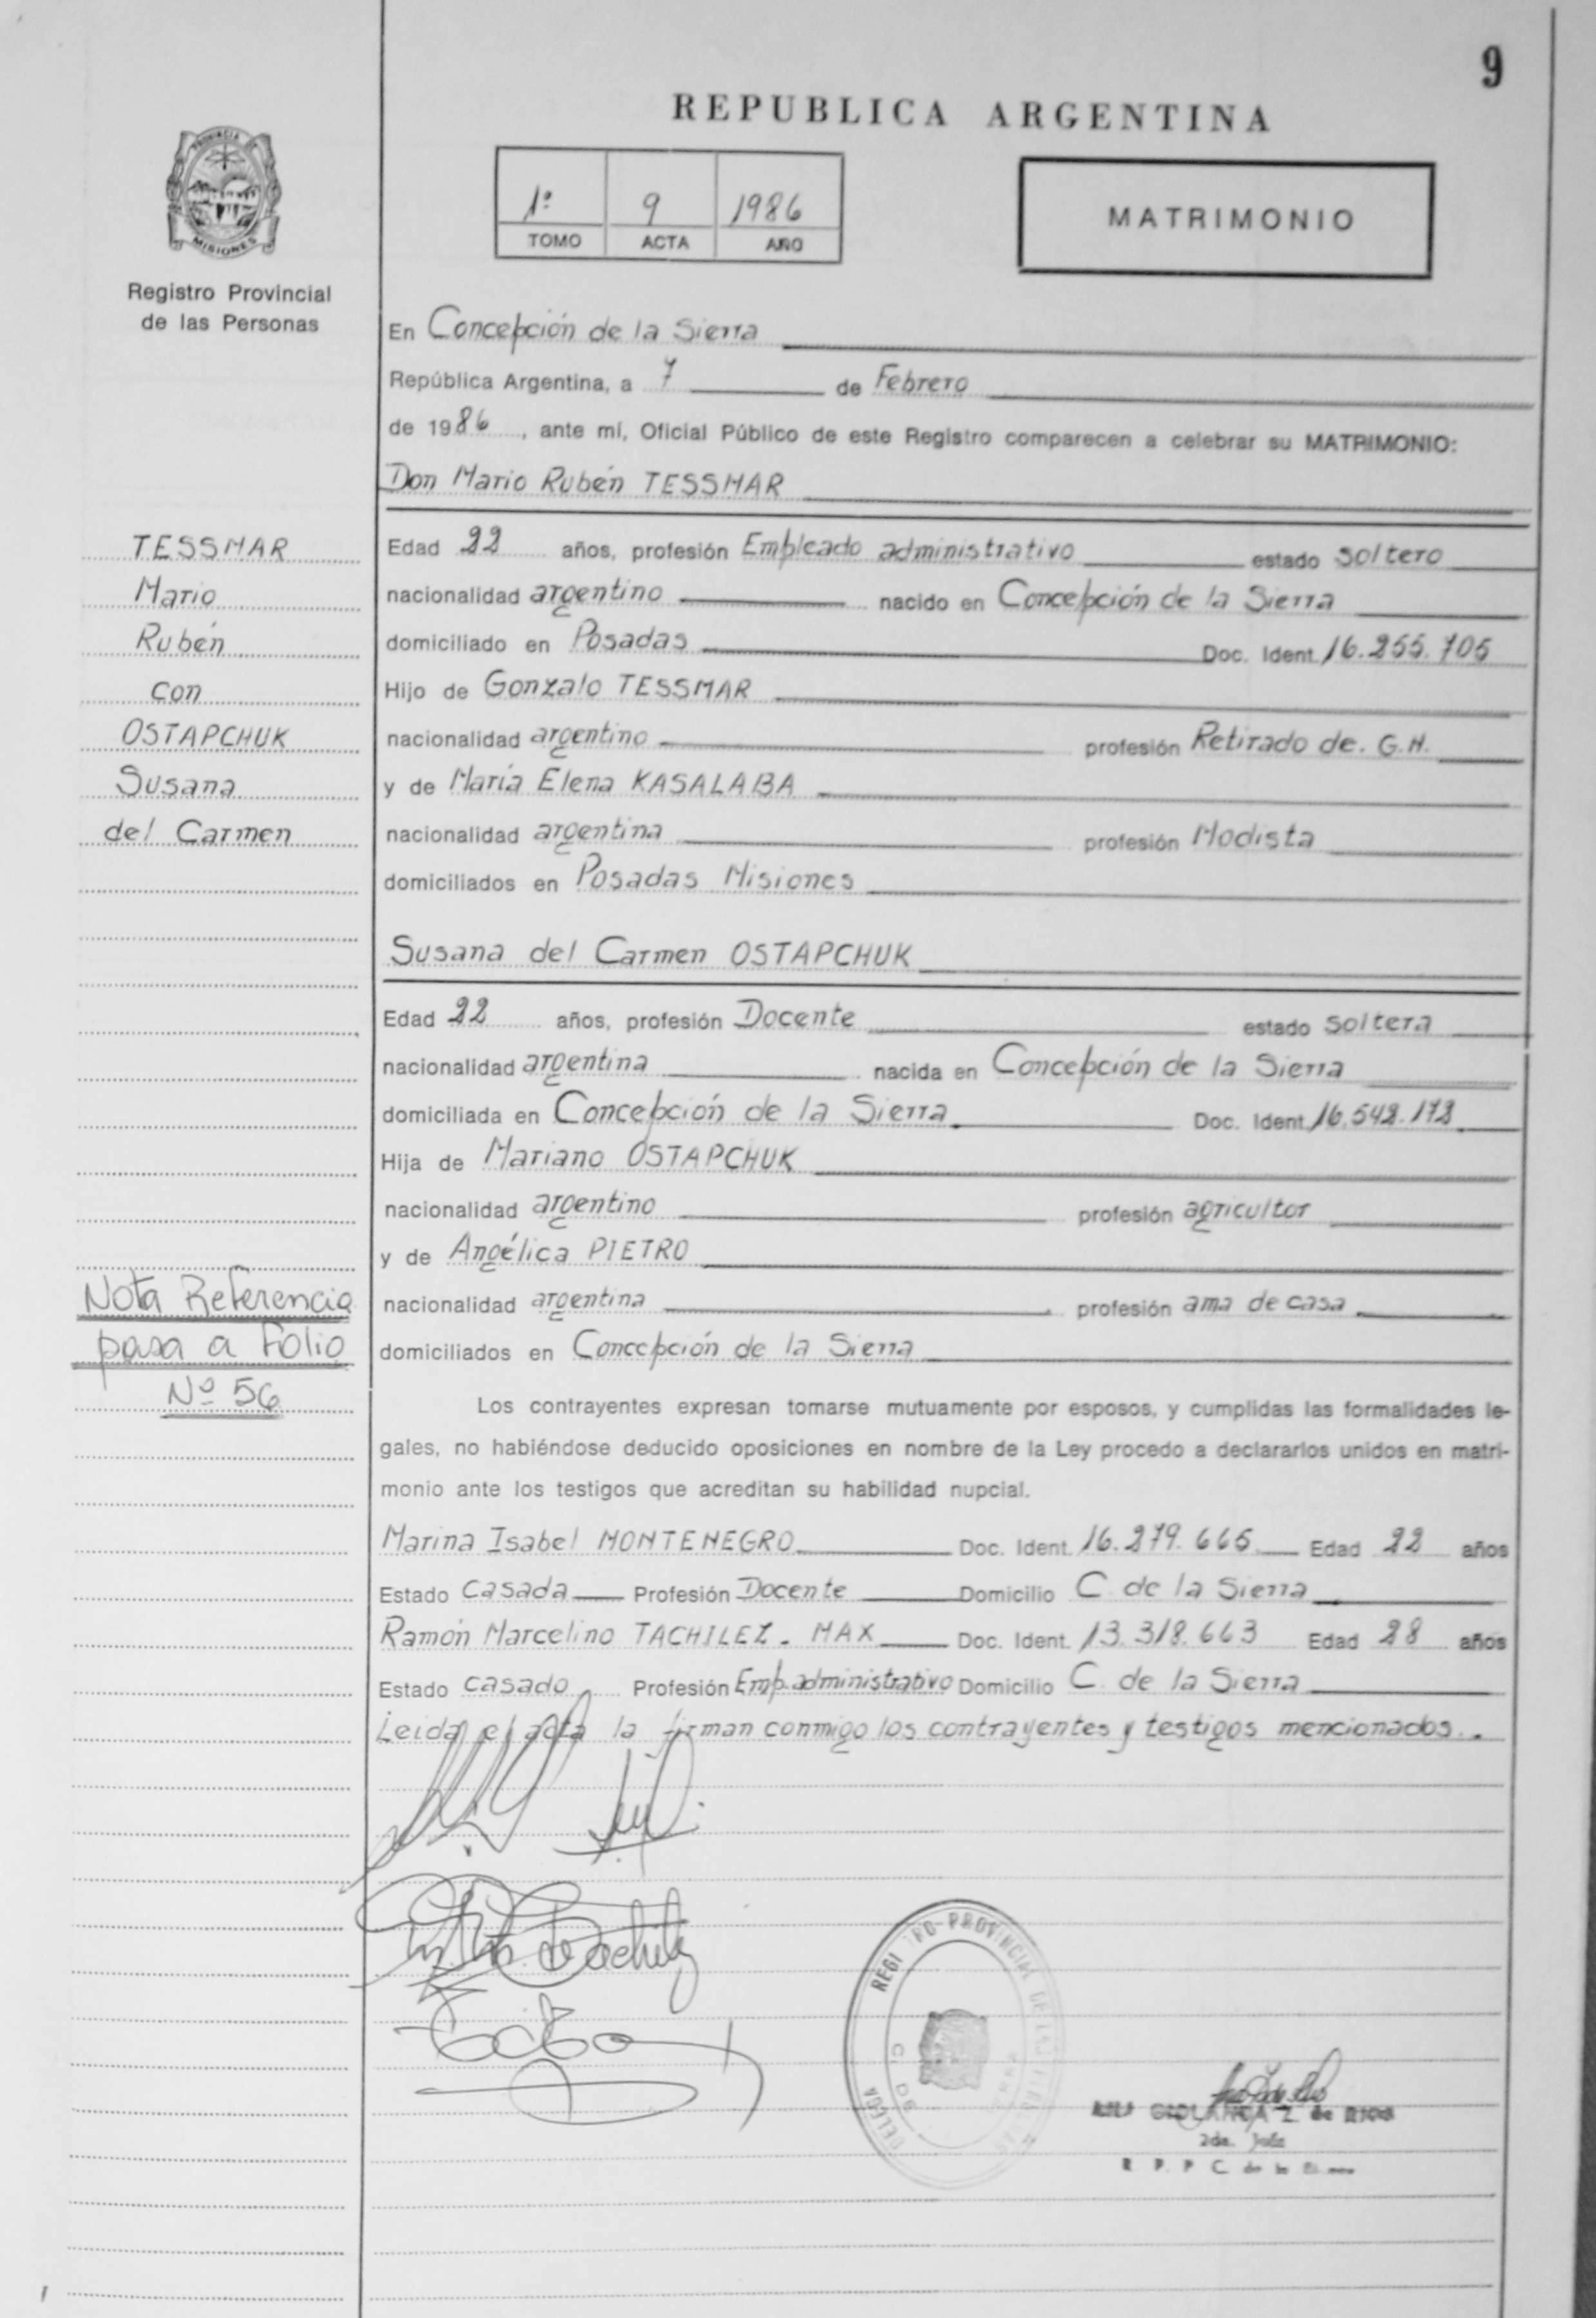 9
REPUBLICA ARGENTINA
PROVINCIA DE
MISIONES
Registro Provincial
de las Personas
1º 9 1986
TOMO ACTA AÑO
MATRIMONIO
En Concepción de la Sierra
República Argentina, a 7 de Febrero
de 1986, ante mí, Oficial Público de este Registro comparecen a celebrar su MATRIMONIO:
Don Mario Rubén TESSMAR
TESSMAR
Mario
Rubén
con
OSTAPCHUK
Susana
del Carmen
Edad 22 años, profesión Empleado administrativo estado soltero
nacionalidad argentino nacido en Concepción de la Sierra
domiciliado en Posadas Doc. Ident. 16.255.705
Hijo de Gonzalo TESSMAR
nacionalidad argentino profesión Retirado de. G.N.
y de María Elena KASALABA
nacionalidad argentina profesión Modista
domiciliados en Posadas Misiones
Susana del Carmen OSTAPCHUK
Edad 22 años, profesión Docente estado soltera
nacionalidad argentina nacida en Concepción de la Sierra
domiciliada en Concepción de la Sierra Doc. Ident. 16.542.172
Hija de Mariano OSTAPCHUK
nacionalidad argentino profesión agricultor
y de Angélica PIETRO
nacionalidad argentina profesión ama de casa
domiciliados en Concepción de la Sierra
Nota Referencia
pasa a Folio
Nº 56
Los contrayentes expresan tomarse mutuamente por esposos, y cumplidas las formalidades le-
gales, no habiéndose deducido oposiciones en nombre de la Ley procedo a declararlos unidos en matri-
monio ante los testigos que acreditan su habilidad nupcial.
Marina Isabel MONTENEGRO Doc. Ident. 16.279.665 Edad 22 años
Estado casada Profesión Docente Domicilio C. de la Sierra
Ramón Marcelino TACHILEZ - MAX Doc. Ident. 13.318.663 Edad 28 años
Estado casado Profesión Emp. administrativo Domicilio C. de la Sierra
Leida el acta la firman conmigo los contrayentes y testigos mencionados.
REGI RO PROVINCIAL DE LAS
DELEGA
Z de RIOS
2da. Jefe
R P P C de la